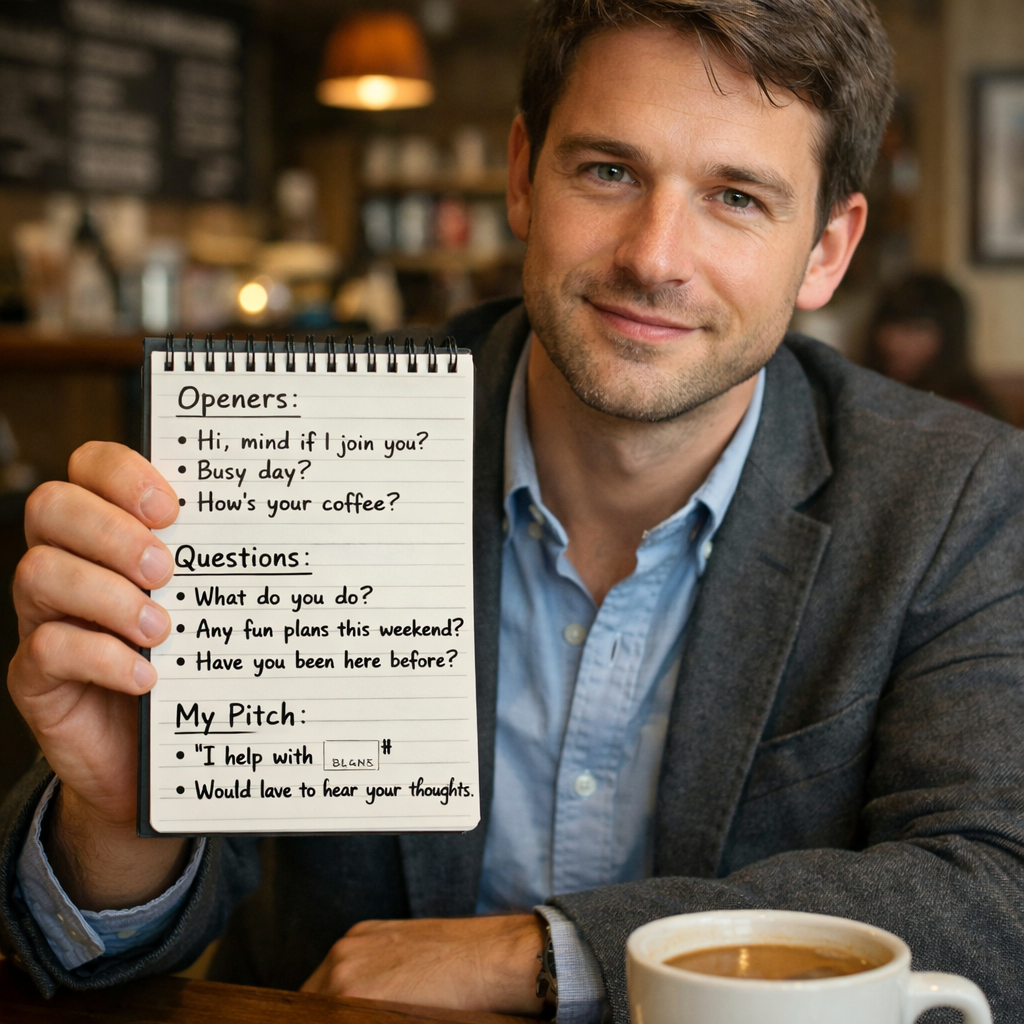 Openers:
• Hi, mind if I join you?
• Busy day?
• How's your coffee?
Questions:
• What do you do?
• Any fun plans this weekend?
• Have you been here before?
My Pitch:
• "I help with BLANK"
• Would lave to hear your thoughts.